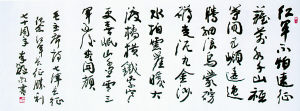 红军不怕远征
难万水千山只
等闲五岭逶迤
腾细浪乌蒙磅
礴走泥丸金沙
水拍云崖暖大
渡桥横铁索寒
更喜岷山千里雪三
军过后尽开颜
毛主席诗七律长征
纪念红军长征胜利
七十周年